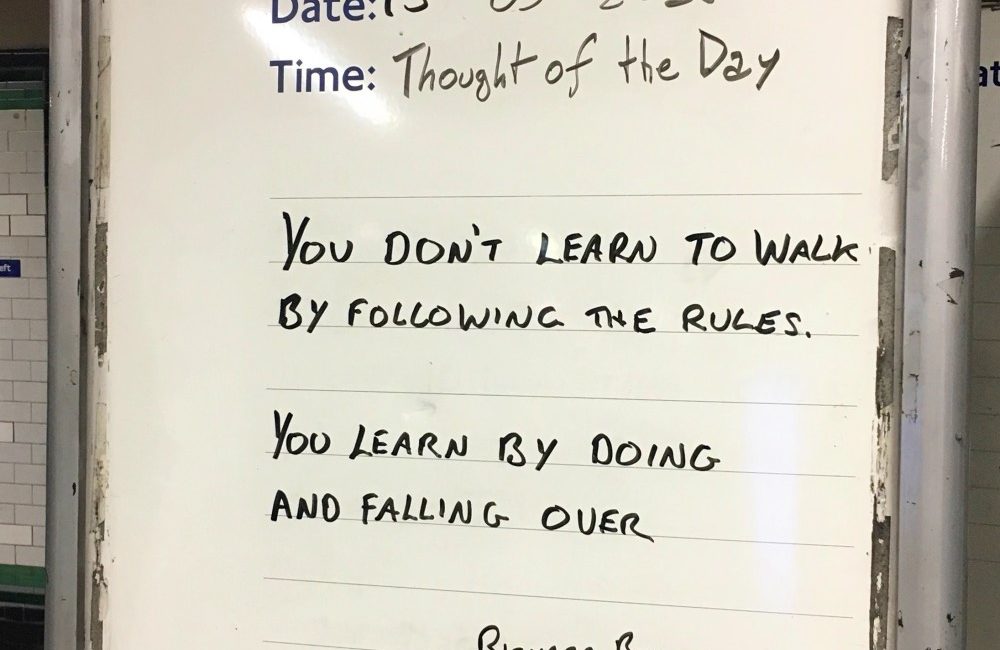 Date:
Time: Thought of the Day
YOU DON'T LEARN TO WALK
BY FOLLOWING THE RULES.
YOU LEARN BY DOING
AND FALLING OVER